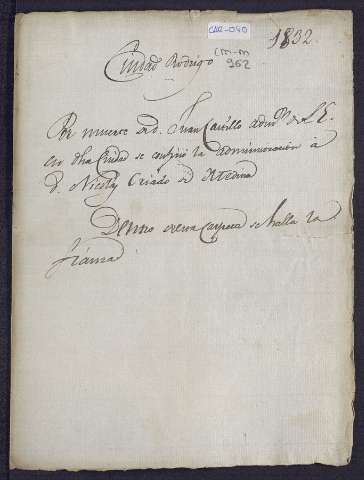 CAR-040
1832.
Ciudad Rodrigo
CM-M
962
Por muerte de d. Juan Carrillo admor. de S.E.
en dha Ciudad se confirió la administracion á
d. Nicolas Criado de Medina
Dentro de esta Carpeta se halla la
fianza